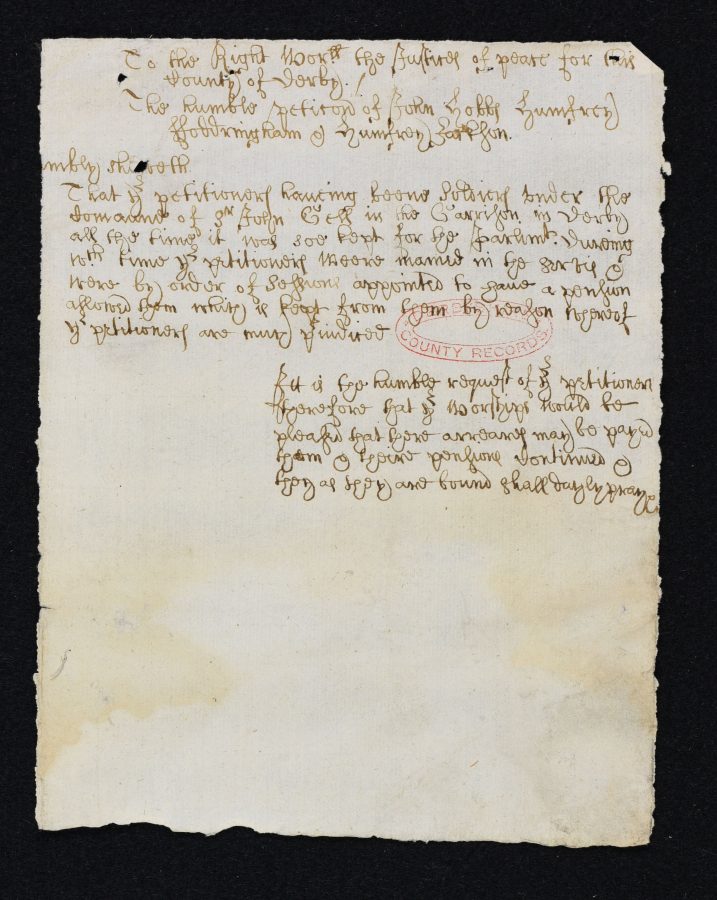 To the Right Worll the Justices of peace for this
County of Derby.
The humble peticon of John Hobbs Humfrey
& Humfrey Jackson.
mbly sheweth
That yr petitioners haveing beene Soldiers under the
Comaund of Sr John Gell in the Garrison in Derby
all the time it was soe kept for the Parlimt. During
wch time yr petitioners Weere maimd in the Servis &
were by order of Sessions appointed to have a pension
allowed them which is kept from them by reason whereof
yr petitioners are much pjudiced
COUNTY RECORDS
Itt is the humble request of yr petitioners
therefore that yr Worships would be
pleased that there arreares may be payed
them & theire pensions Continued &
they as they are bound shall dayly pray